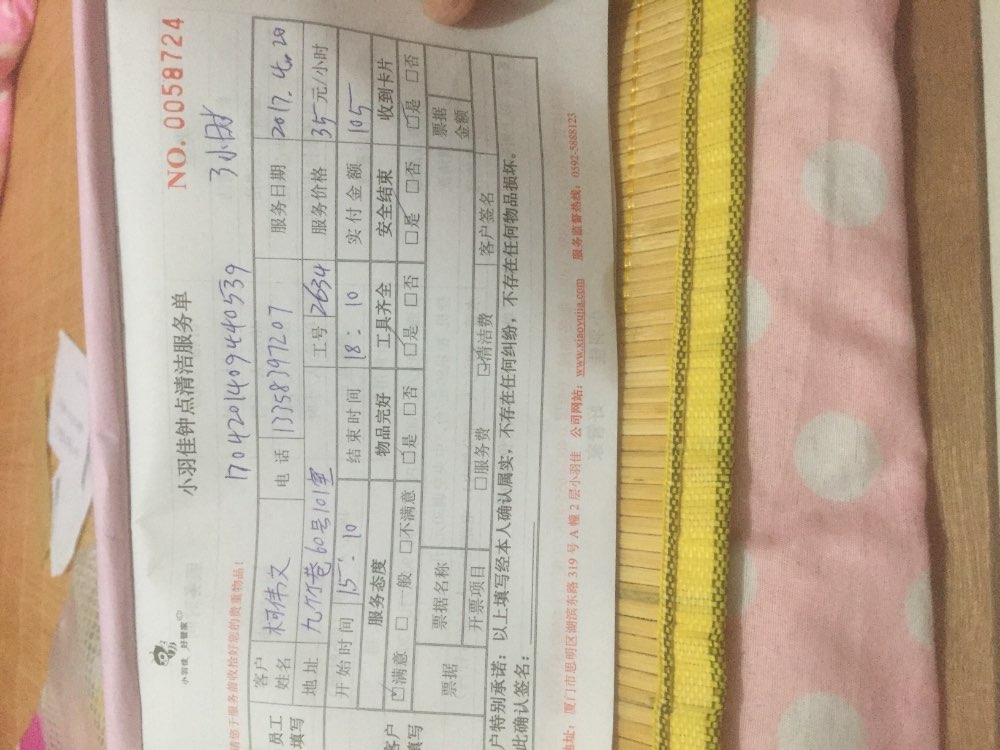 小羽佳 好管家
NO. 0058724
小羽佳钟点清洁服务单
请您于服务前收检好您的贵重物品！
17042014094440539
员工填写
客户姓名 柯伟文 电话 13358397207 服务日期 2017.4.20
地址 60号101室 工号 2634 服务价格 35元/小时
开始时间 15:10 结束时间 18:10 实付金额 105
服务态度 物品完好 工具齐全 安全结束 收到卡片
☑满意 □一般 □不满意 ☑是 □否 ☑是 □否 ☑是 □否 ☑是 □否
票据 票据名称 票据金额
开票项目 □服务费 ☑清洁费 客户签名
户特别承诺：以上填写经本人确认属实，不存在任何纠纷，不存在任何物品损坏。
此确认签名：
地址：厦门市思明区湖滨东路319号A幢2层小羽佳 公司网站：www.xiaoyujia.com 服务监督热线：0592-5888123